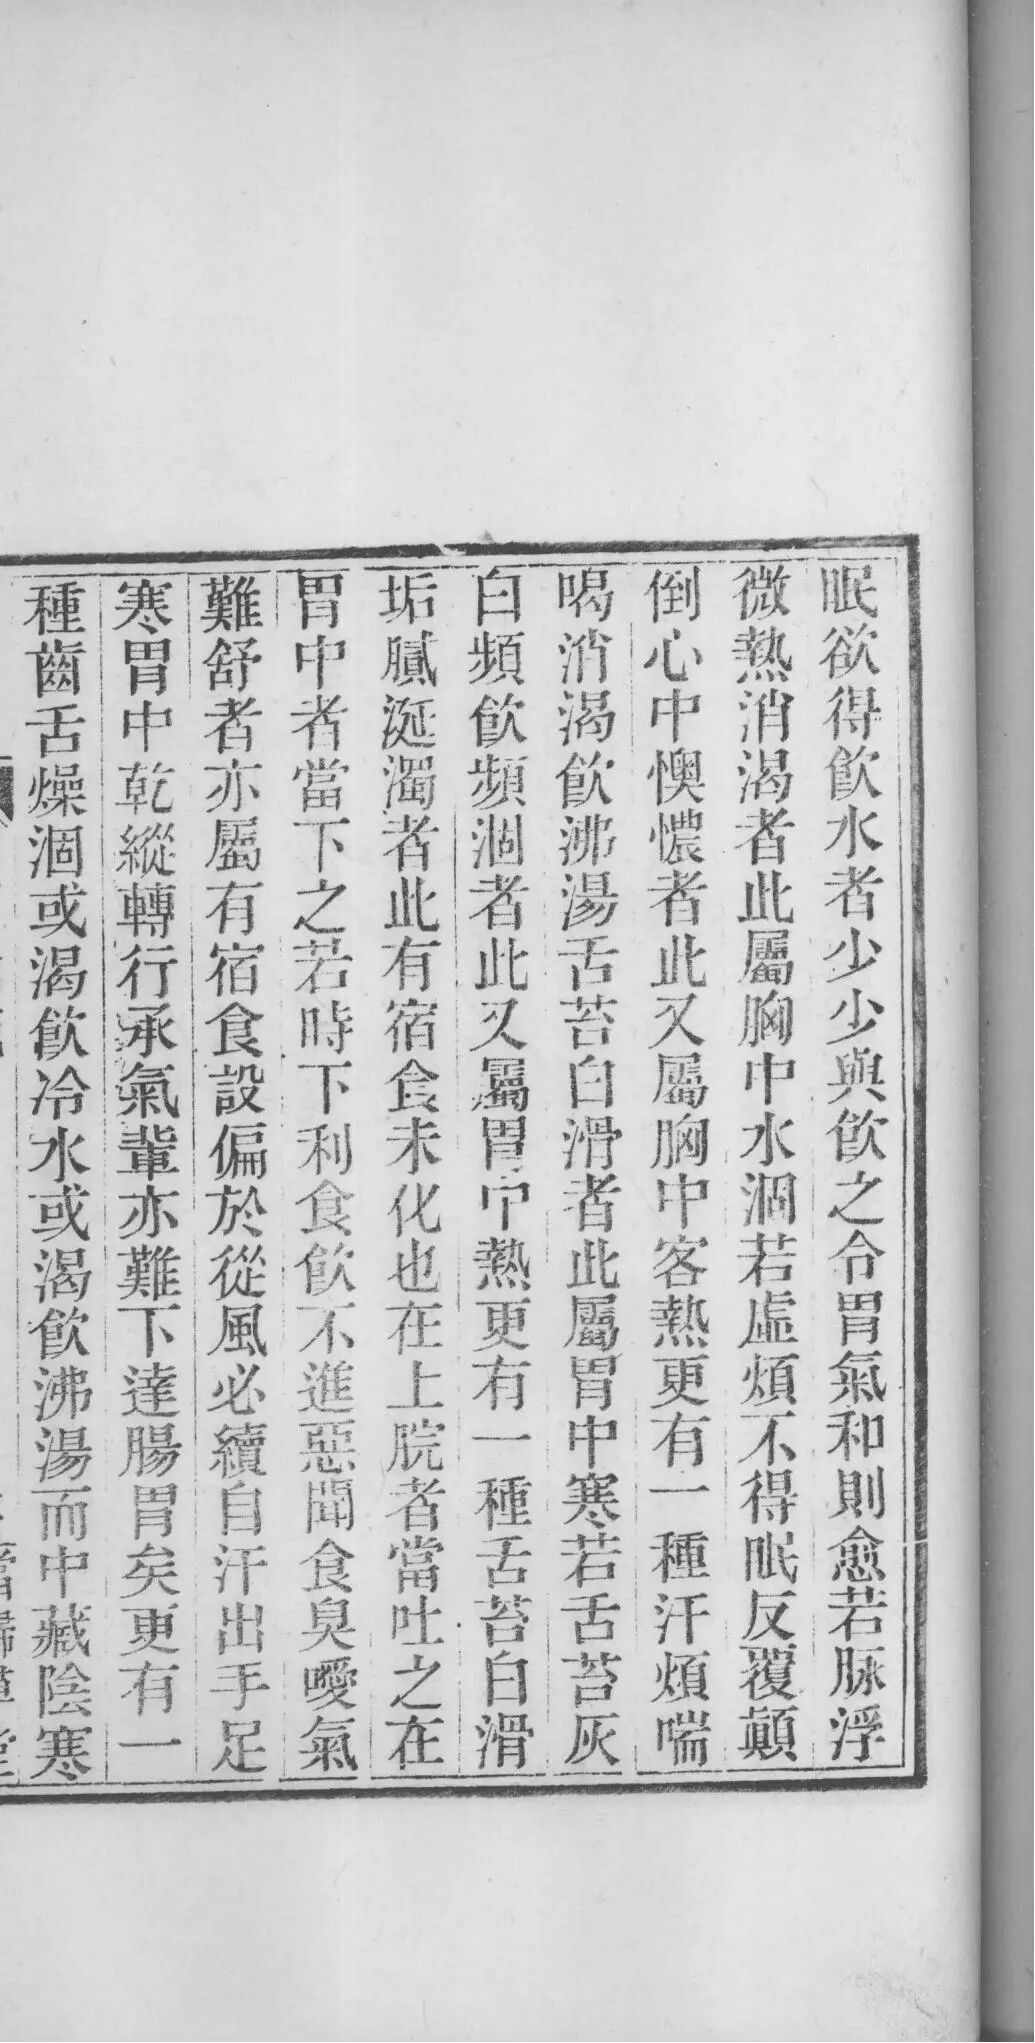 眠欲得飲水者少少與飲之令胃氣和則愈若脉浮
微熱消渴者此屬胸中水涸若虛煩不得眠反覆顛
倒心中懊憹者此又屬胸中客熱更有一種汗煩喘
喝消渴飲沸湯舌苔白滑者此屬胃中寒若舌苔灰
白頻飲頻涸者此又屬胃中熱更有一種舌苔白滑
垢膩涎濁者此有宿食未化也在上脘者當吐之在
胃中者當下之若時下利食飲不進惡聞食臭噯氣
難舒者亦屬有宿食設偏於從風必續自汗出手足
寒胃中乾縱轉行承氣輩亦難下達腸胃矣更有一
種齒舌燥涸或渴飲冷水或渴飲沸湯而中藏陰寒